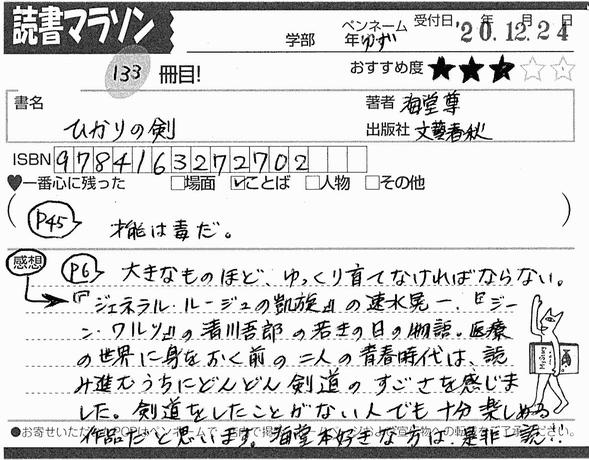 読書マラソン
学部 年 ペンネーム ゆず 受付日 '20年12月24日
133 冊目! おすすめ度 ★★★☆☆
書名 ひかりの剣 著者 海堂尊
出版社 文藝春秋
ISBN 9784163272702
♥一番心に残った □場面 ☑ことば □人物 □その他
(P45 才能は毒だ。)
感想 P6 大きなものほど、ゆっくり育てなければならない。
『ジェネラル・ルージュの凱旋』の速水晃一、『ジー
ン・ワルツ』の清川吾郎の若き日の物語。医療
の世界に身をおく前の二人の青春時代は、読
み進むうちにどんどん剣道のすごさを感じま
した。剣道をしたことがない人でも十分楽しめる
作品だと思います。海堂本好きな方は、是非一読!!
●お寄せいただいたPOPはペンネームで、